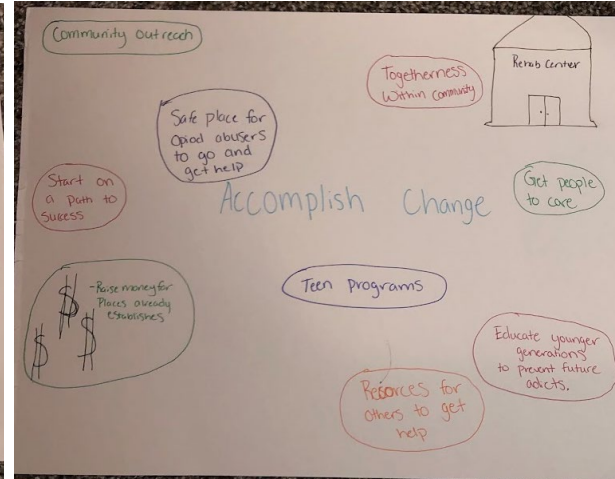 Community Outreach
Togetherness
Within Community
Rehab Center
Safe place for
Opiod abusers
to go and
get help
Start on
a path to
Sucess
Accomplish Change
Get people
to care
- Raise money for
Places already
establishes
$
$
$
Teen programs
Educate younger
generations
to prevent future
adicts.
Resorces for
others to get
help